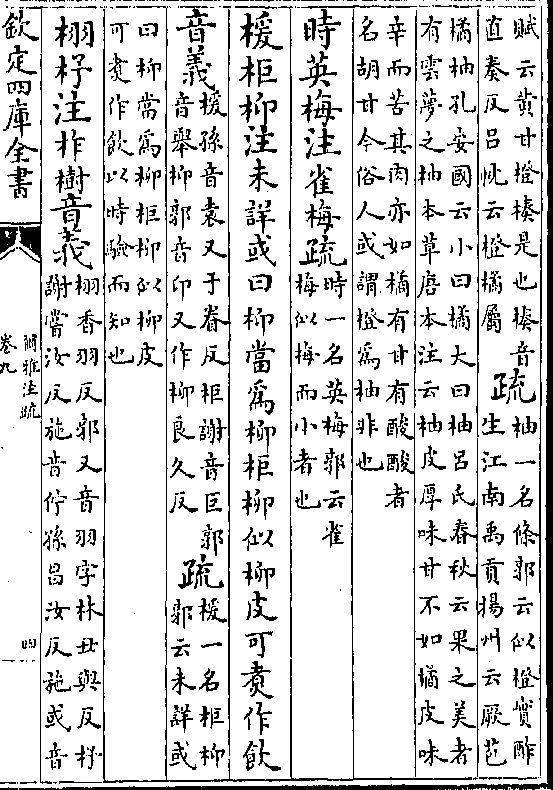 賦云黄甘橙楱是也楱音
直奏反吕忱云橙橘屬
疏
柚一名條郭云似橙實酢
生江南禹貢揚州云厥苞
橘柚孔安國云小曰橘大曰柚吕氏春秋云果之美者
有雲夢之柚本草唐本注云柚皮厚味甘不如橘皮味
辛而苦其肉亦如橘有甘有酸酸者
名胡甘今俗人或謂橙為柚非也
時英梅注雀梅疏
時一名英梅郭云雀
梅似梅而小者也
楥柜桺注未詳或曰桺當為柳柜柳似柳皮可煑作飲
音義
楥孫音袁又于眷反柜謝音巨郭
音舉桺郭音卬又作柳良久反
疏
楥一名柜桺
郭云未詳或
曰桺當為柳柜柳似柳皮
可煑作飲以時驗而知也
栩杼注柞樹音義
栩香羽反郭又音羽字林丑與反杼
謝嘗汝反施音佇孫昌汝反施或音
欽定四庫全書
爾雅注疏
卷九
四